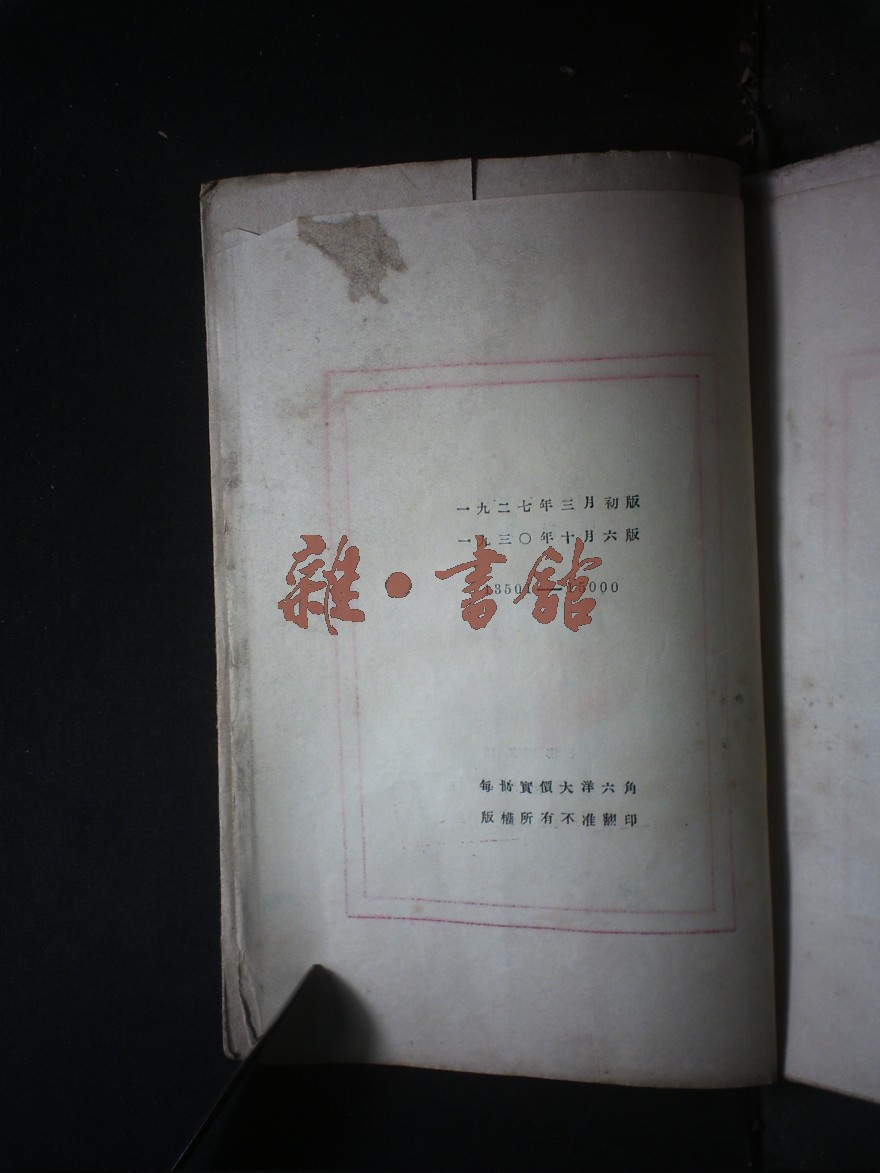 一九二七年三月初版
一九三〇年十月六版
13501——15000
雜·書館
每冊實價大洋六角
版權所有不准翻印